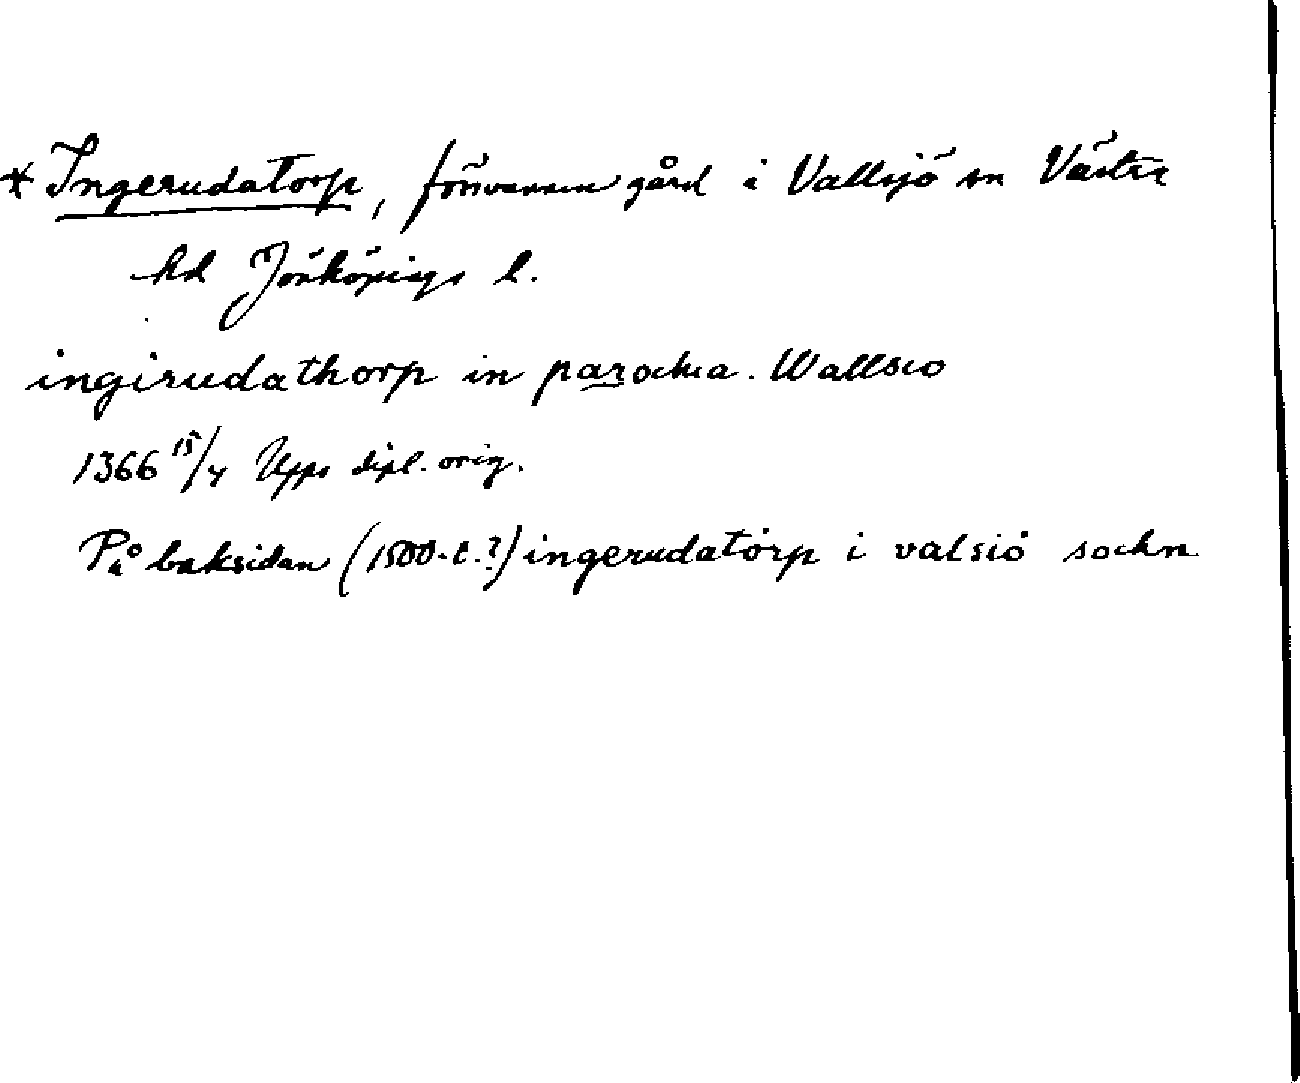 * Ingerudatorp, försvunnen gård i Vallsjö sn Västra
hd Jönköpings l.
ingirudathorp in parochia. Wallsio
1366 15/4 Upps dipl. orig.
På baksidan (1500-t.?) ingerudatorp i valsiö sockn